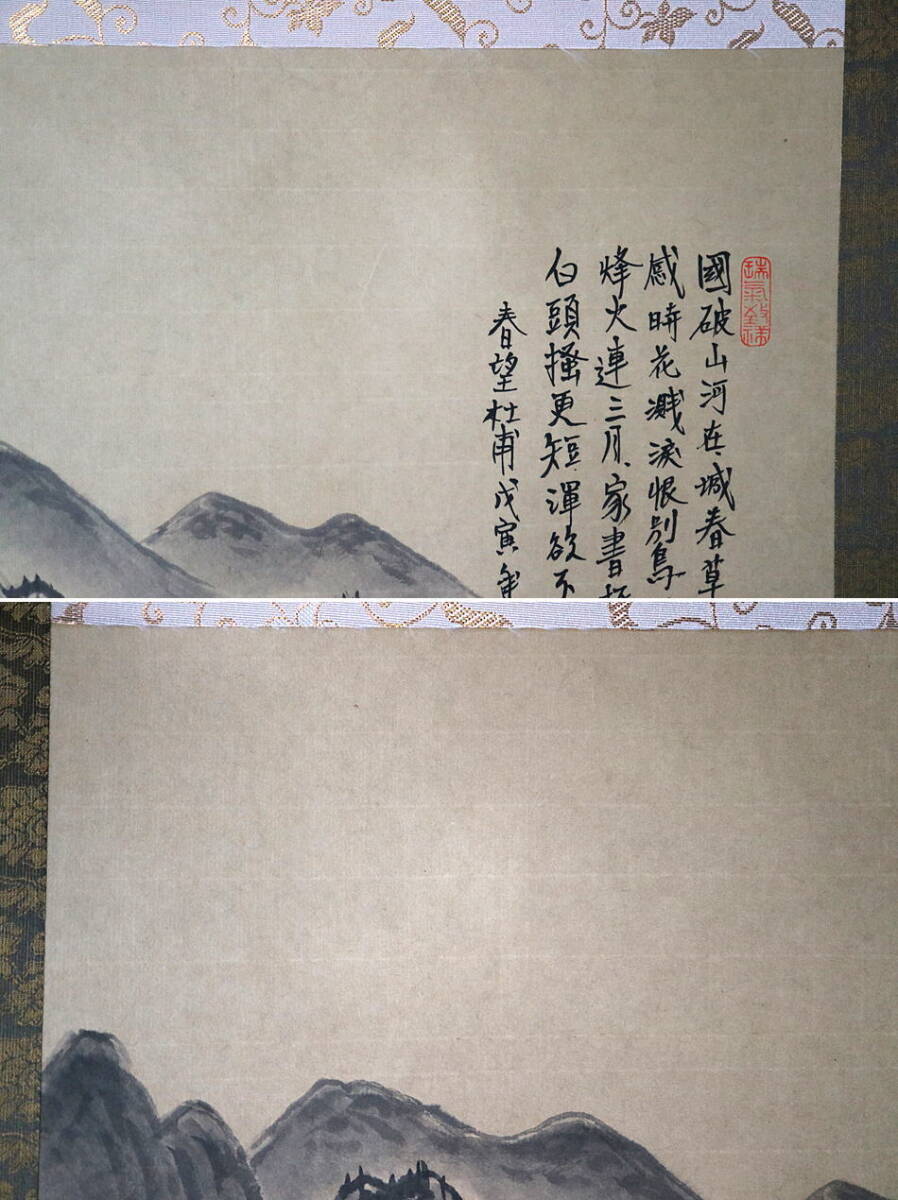 國破山河在城春草
感時花濺淚恨別鳥
烽火連三月家書抵
白頭搔更短渾欲不
春望杜甫戊寅年